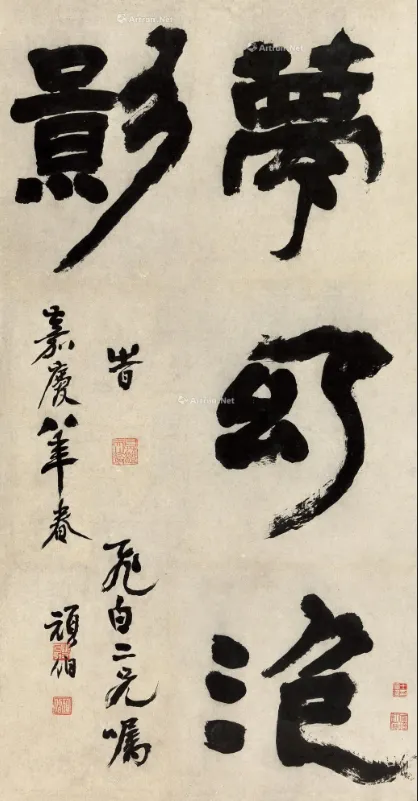 夢幻泡
影
旹
飛白二兄囑
嘉慶八年春
頑伯
Artron.Net
Artron.Net
Artron.Net